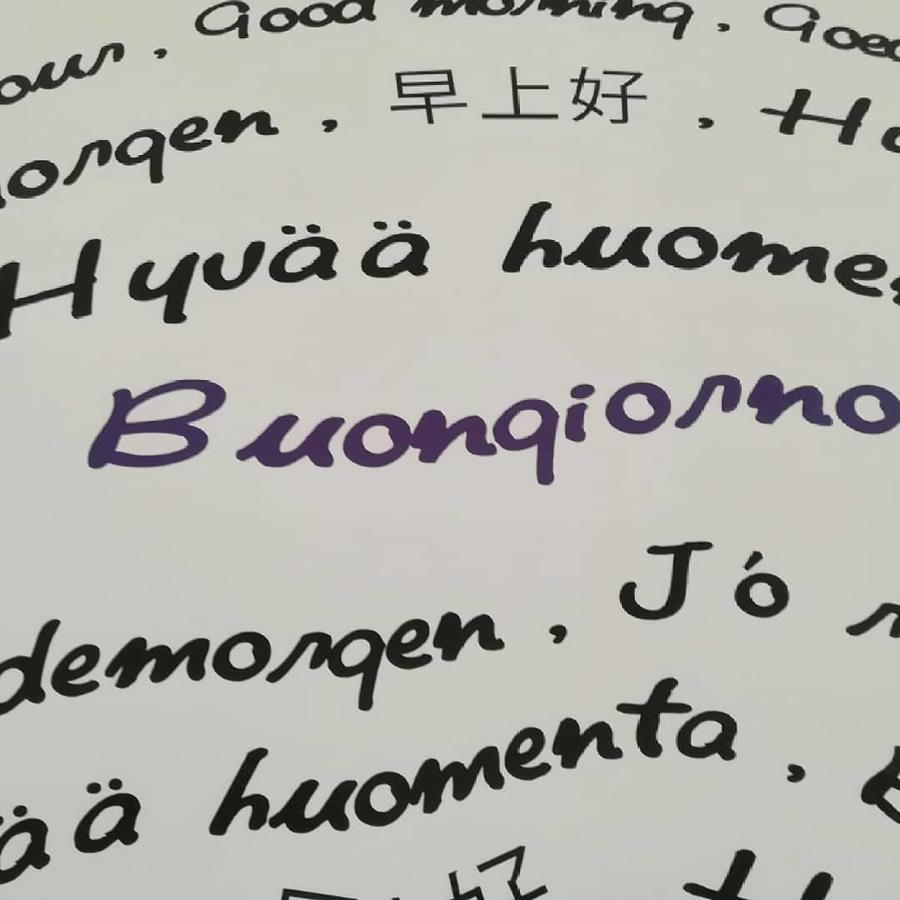 our, Good morning, Goed
orgen, 早上好, H
Hyvää huomen
Buongiorno
demorgen, Jó r
ää huomenta,
好 H